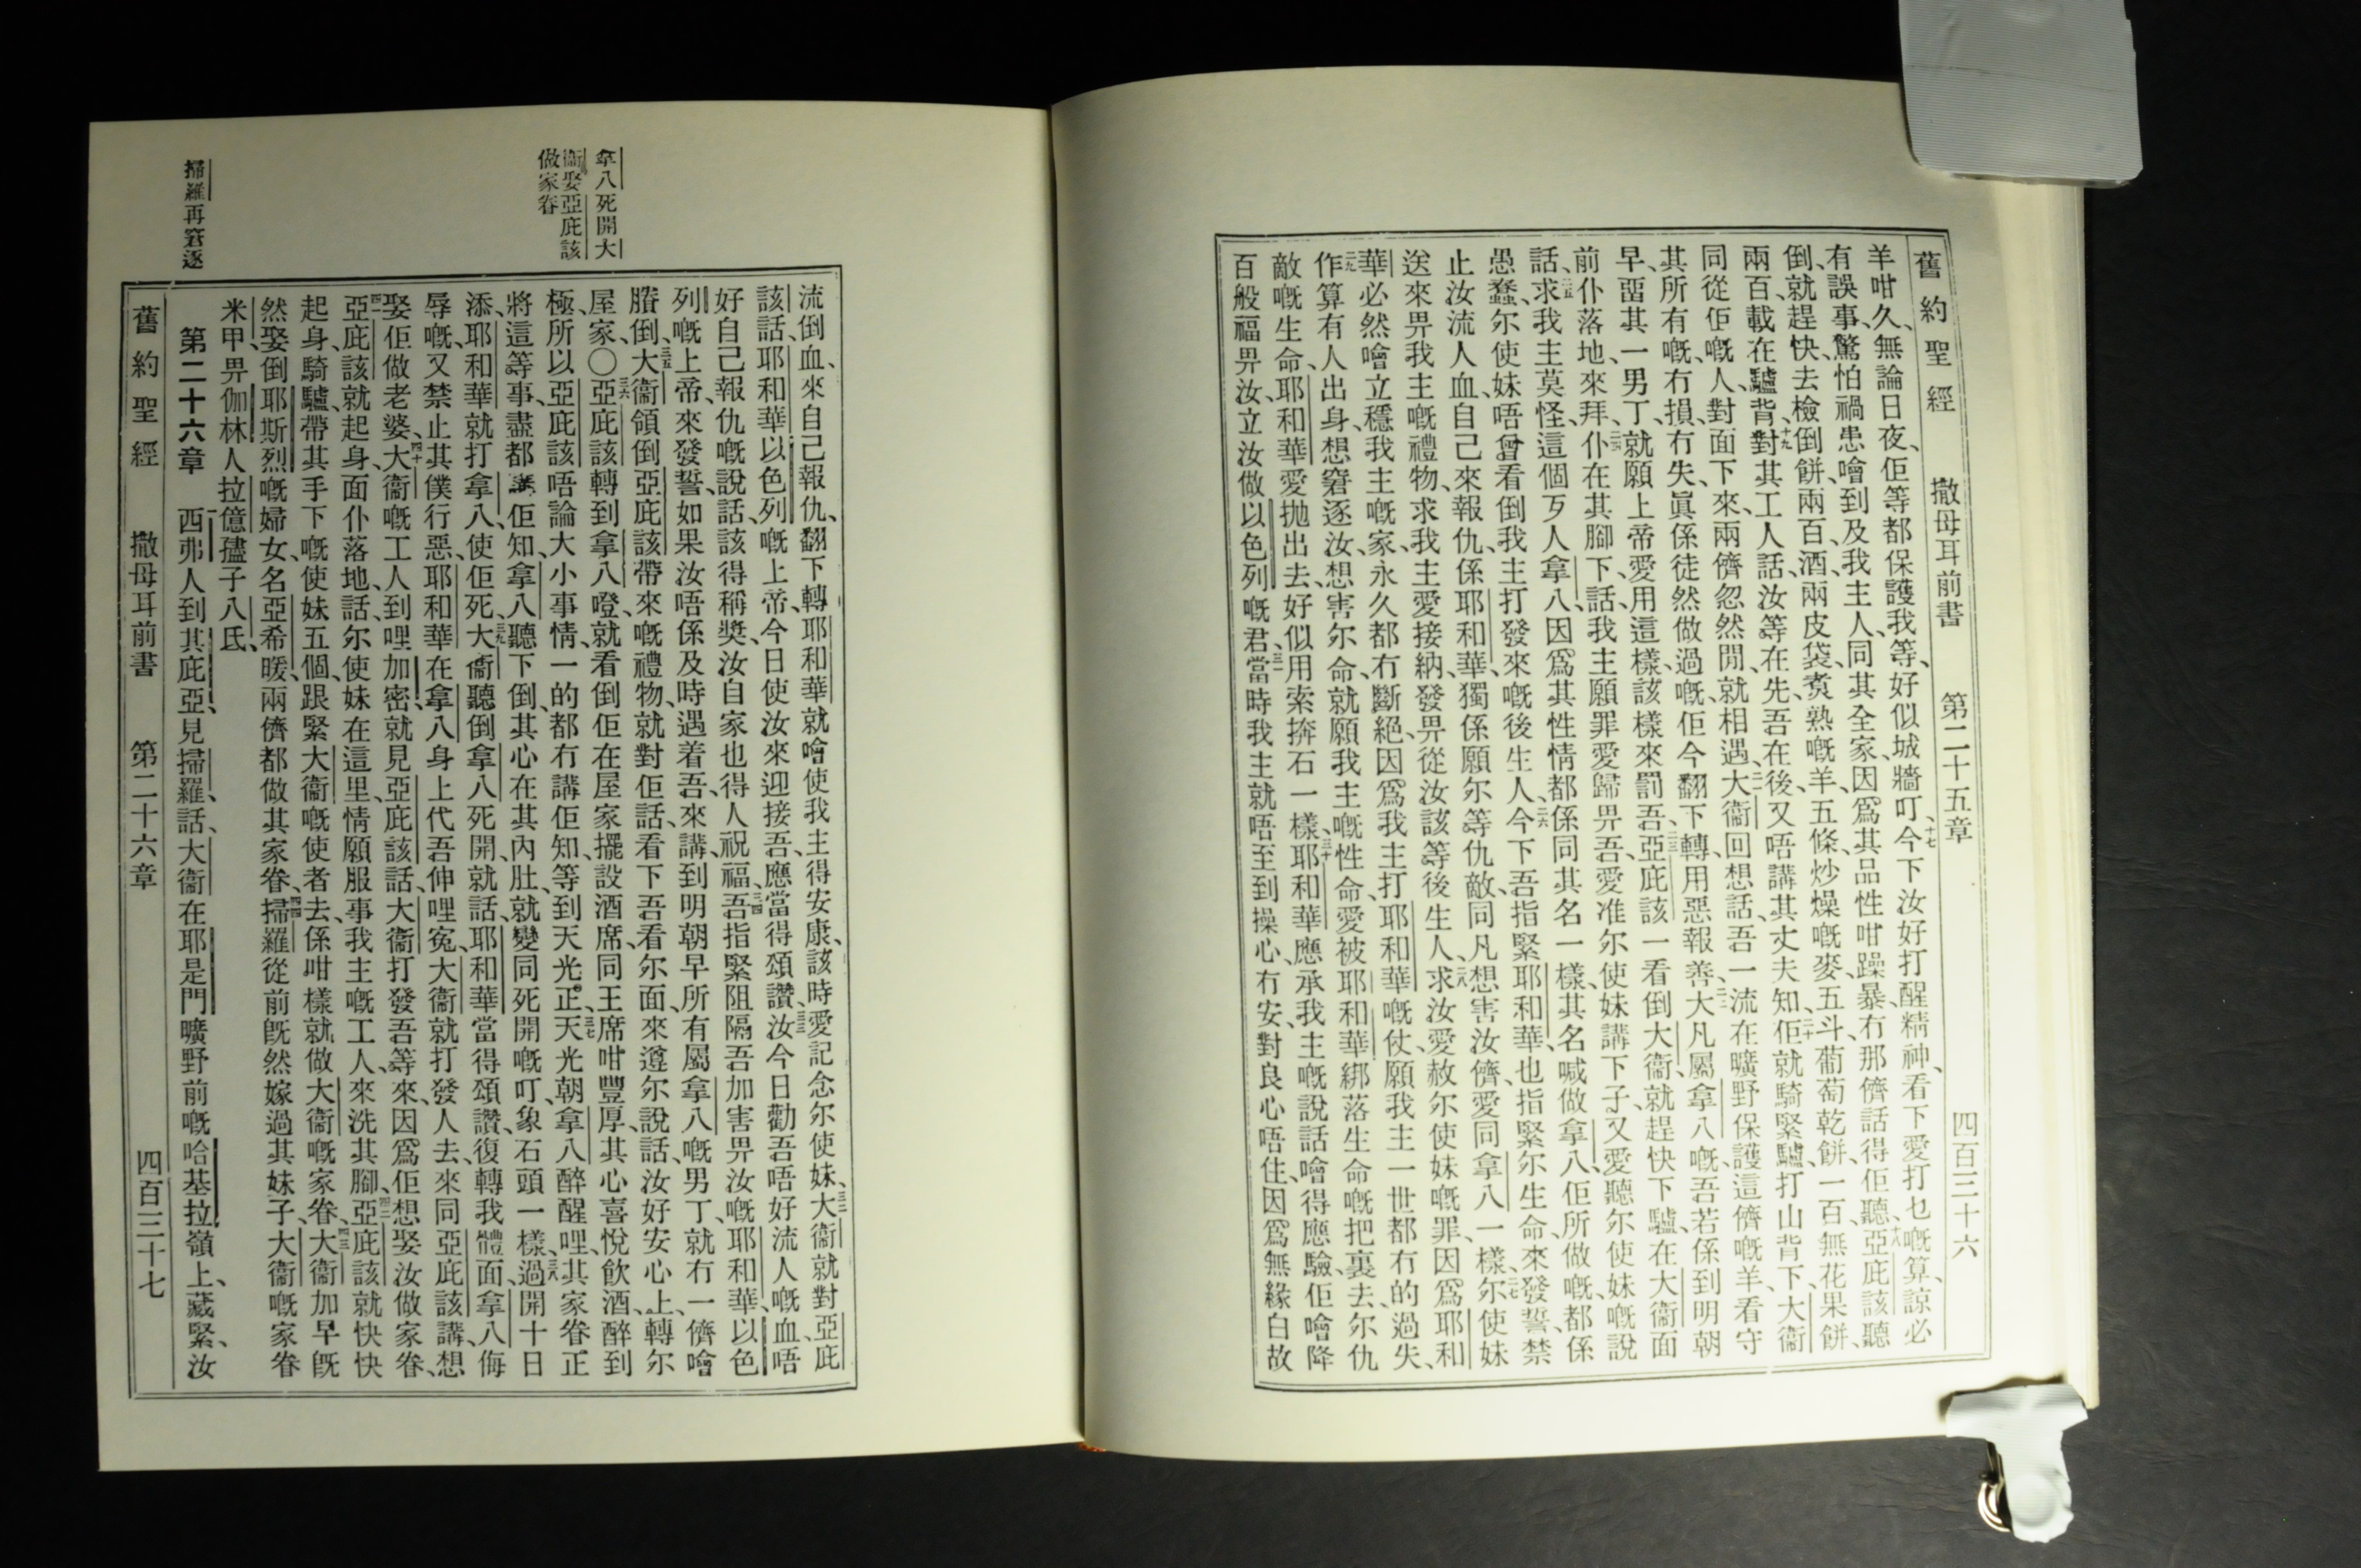 舊約聖經 撒母耳前書 第二十五章 四百三十六
羊咁久、無論日夜、佢等都保護我等、好似城牆叮、十七今下汝好打醒精神、看下愛打乜嘅算、諒必
有誤事、驚怕禍患噲到及我主人、同其全家、因爲其品性咁躁暴、冇那儕話得佢聽、十八亞庇該聽
倒、就趕快去檢倒餅兩百、酒兩皮袋、煑熟嘅羊五條、炒燥嘅麥五斗、葡萄乾餅一百、無花果餅
兩百、載在驢背、十九對其工人話、汝等在先、吾在後、又唔講其丈夫知、二十佢就騎緊驢、打山背下、大衞
同從佢嘅人、對面下來、兩儕忽然閒就相遇、二一大衞回想話、吾一流在曠野保護這儕嘅羊、看守
其所有嘅、冇損冇失、眞係徒然做過嘅、佢今翻下轉、用惡報善、二二大凡屬拿八嘅、吾若係到明朝
早、畱其一男丁、就願上帝愛用這樣該樣來罰吾、二三亞庇該一看倒大衞、就趕快下驢、在大衞面
前仆落地、來拜、二四仆在其腳下、話、我主願罪愛歸畀吾、愛准尔使妹講下子、又愛聽尔使妹嘅說
話、二五求我主莫怪這個歹人拿八、因爲其性情都係同其名一樣、其名喊做拿八、佢所做嘅、都係
愚蠢、尔使妹唔曾看倒我主打發來嘅後生人、二六今下吾指緊耶和華、也指緊尔生命、來發誓、禁
止汝流人血、自己來報仇、係耶和華、獨係願尔等仇敵、同凡想害汝儕、愛同拿八一樣、二七尔使妹
送來畀我主嘅禮物、求我主愛接納、發畀從汝該等後生人、二八求汝愛赦尔使妹嘅罪、因爲耶和
華必然噲立穩我主嘅家、永久都冇斷絕、因爲我主打耶和華嘅仗、願我主一世都冇的過失、
二九作算有人出身、想窘逐汝、想害尔命、就願我主嘅性命、愛被耶和華綁落生命嘅把裏去、尔仇
敵嘅生命、耶和華愛抛出去、好似用索㨃石一樣、三十耶和華應承我主嘅說話、噲得應驗、佢噲降
百般福畀汝、立汝做以色列嘅君、三一當時我主就唔至到操心、冇安、對良心唔住、因爲無緣白故
拿八死開大
衞娶亞庇該
做家眷
掃羅再窘逐
流倒血、來自己報仇、翻下轉、耶和華就噲使我主得安康、該時愛記念尔使妹、三二大衞就對亞庇
該話、耶和華以色列嘅上帝、今日使汝來迎接吾、應當得頌讚、三三汝今日勸吾唔好流人嘅血、唔
好自己報仇嘅說話、該得稱獎、汝自家也得人祝福、三四吾指緊阻隔吾加害畀汝嘅耶和華、以色
列嘅上帝、來發誓、如果汝唔係及時遇着吾、來講、到明朝早、所有屬拿八嘅男丁、就冇一儕噲
賸倒、三五大衞領倒亞庇該帶來嘅禮物、就對佢話、看下吾看尔面、來遵尔說話、汝好安心上、轉尔
屋家○三六亞庇該轉到拿八噔、就看倒佢在屋家擺設酒席、同王席咁豐厚、其心喜悅飲酒、醉到
極、所以亞庇該唔論大小事情、一的都冇講佢知、等到天光正、三七天光朝拿八醉醒哩、其家眷正
將這等事、盡都講佢知、拿八聽下倒、其心在其內肚、就變同死開嘅叮、象石頭一樣、三八過開十日
添、耶和華就打拿八、使佢死、三九大衞聽倒拿八死開、就話、耶和華當得頌讚、復轉我體面、拿八侮
辱嘅、又禁止其僕行惡、耶和華在拿八身上代吾伸哩冤、大衞就打發人去、來同亞庇該講、想
娶佢做老婆、四十大衞嘅工人到哩加密、就見亞庇該話、大衞打發吾等來、因爲佢想娶汝做家眷、
四一亞庇該就起身、面仆落地、話、尔使妹在這里、情願服事我主嘅工人、來洗其腳、四二亞庇該就快快
起身、騎驢、帶其手下嘅使妹五個、跟緊大衞嘅使者去、係咁樣就做大衞嘅家眷、四三大衞加早旣
然娶倒耶斯烈嘅婦女、名亞希暖、兩儕都做其家眷、四四掃羅從前旣然嫁過其妹子、大衞嘅家眷
米甲、畀伽林人拉億㜽子八氐、
第二十六章 西弗人到其庇亞、見掃羅、話、大衞在耶是門曠野前嘅哈基拉嶺上、藏緊、汝
舊約聖經 撒母耳前書 第二十六章 四百三十七